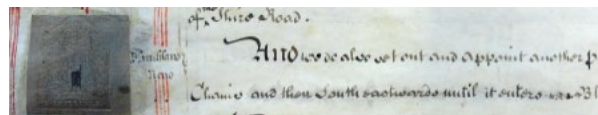 of the Third Road.
Road
And we do also set out and appoint another P
Chains and then South eastwards until it enters Bl